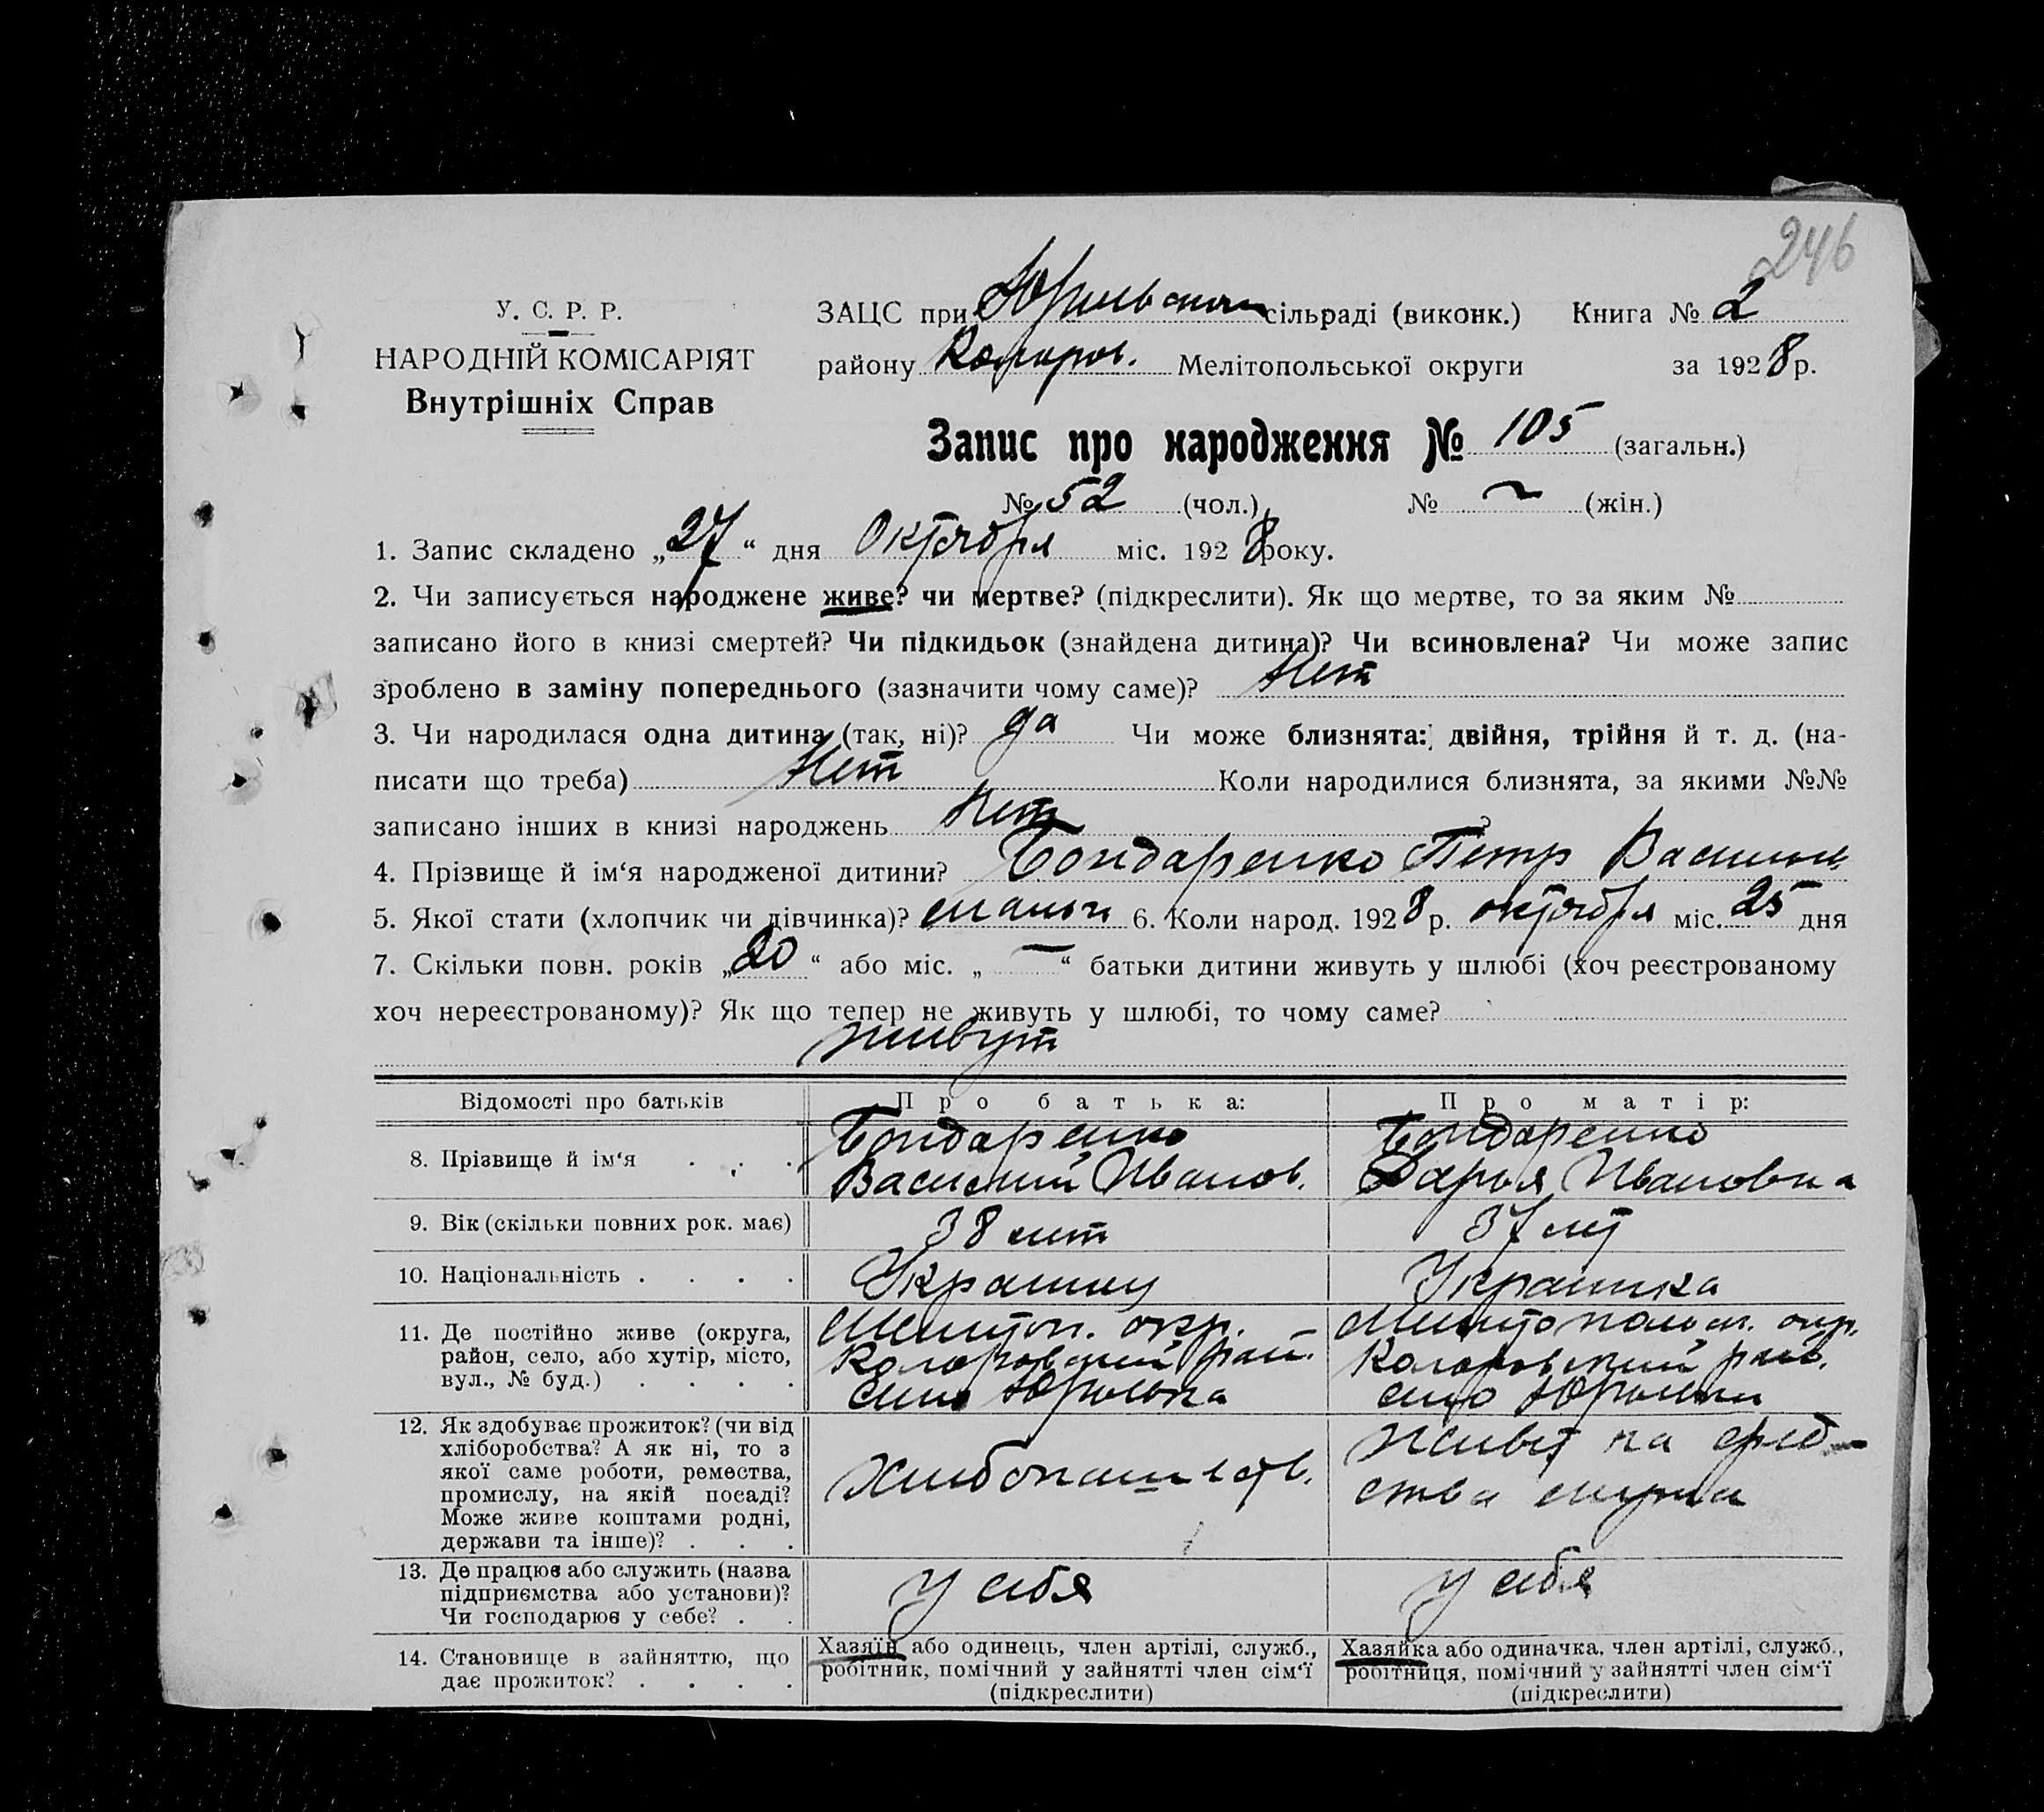 246
У. С. Р. Р.
НАРОДНІЙ КОМІСАРІЯТ
Внутрішніх Справ
ЗАЦС при сільраді (виконк.) Книга № 2
району Коларов. Мелітопольської округи за 1928 р.
Запис про народження № 105 (загальн.)
№ 52 (чол.) № ~ (жін.)
1. Запис складено „27“ дня Октября міс. 1928 року.
2. Чи записується народжене живе? чи мертве? (підкреслити). Як що мертве, то за яким №
записано його в книзі смертей? Чи підкидьок (знайдена дитина)? Чи всиновлена? Чи може запис
зроблено в заміну попереднього (зазначити чому саме)? Нет
3. Чи народилася одна дитина (так, ні)? да Чи може близнята: двійня, трійня й т. д. (на-
писати що треба) Нет Коли народилися близнята, за якими №№
записано інших в книзі народжень Нет ?
4. Прізвище й ім‘я народженої дитини? Бондаренко Петр Васильев.
5. Якої стати (хлопчик чи дівчинка)? мальч 6. Коли народ. 1928 р. октября міс. 25 дня
7. Скільки повн. років „20“ або міс. „—“ батьки дитини живуть у шлюбі (хоч реєстрованому
хоч нереєстрованому)? Як що тепер не живуть у шлюбі, то чому саме?
живут
Відомості про батьків Про батька: Про матір:
8. Прізвище й ім‘я . . .
Бондаренко
Василий Иванов.
Бондаренко
Дарья Ивановна
9. Вік (скільки повних рок. має) 38 лет 37 лет
10. Національність . . . . Украинец Украинка
11. Де постійно живе (округа,
район, село, або хутір, місто,
вул., № буд.) . . . .
Мелитоп. окр.
Коларовский рай.
село Юрьевка
Мелитопольск. окр.
Коларовский рай.
село Юрьевки
12. Як здобуває прожиток? (чи від
хліборобства? А як ні, то з
якої саме роботи, ремества,
промислу, на якій посаді?
Може живе коштами родні,
держави та інше)? . . .
Хлебопашеств.
Живет на сред-
ства мужа
13. Де працює або служить (назва
підприємства або установи)?
Чи господарює у себе? . .
у себя
у себя
14. Становище в зайняттю, що
дає прожиток? . . . .
Хазяїн або одинець, член артілі, служб.,
робітник, помічний у зайнятті член сім‘ї
(підкреслити)
Хазяйка або одиначка, член артілі, служб.,
робітниця, помічний у зайнятті член сім‘ї
(підкреслити)